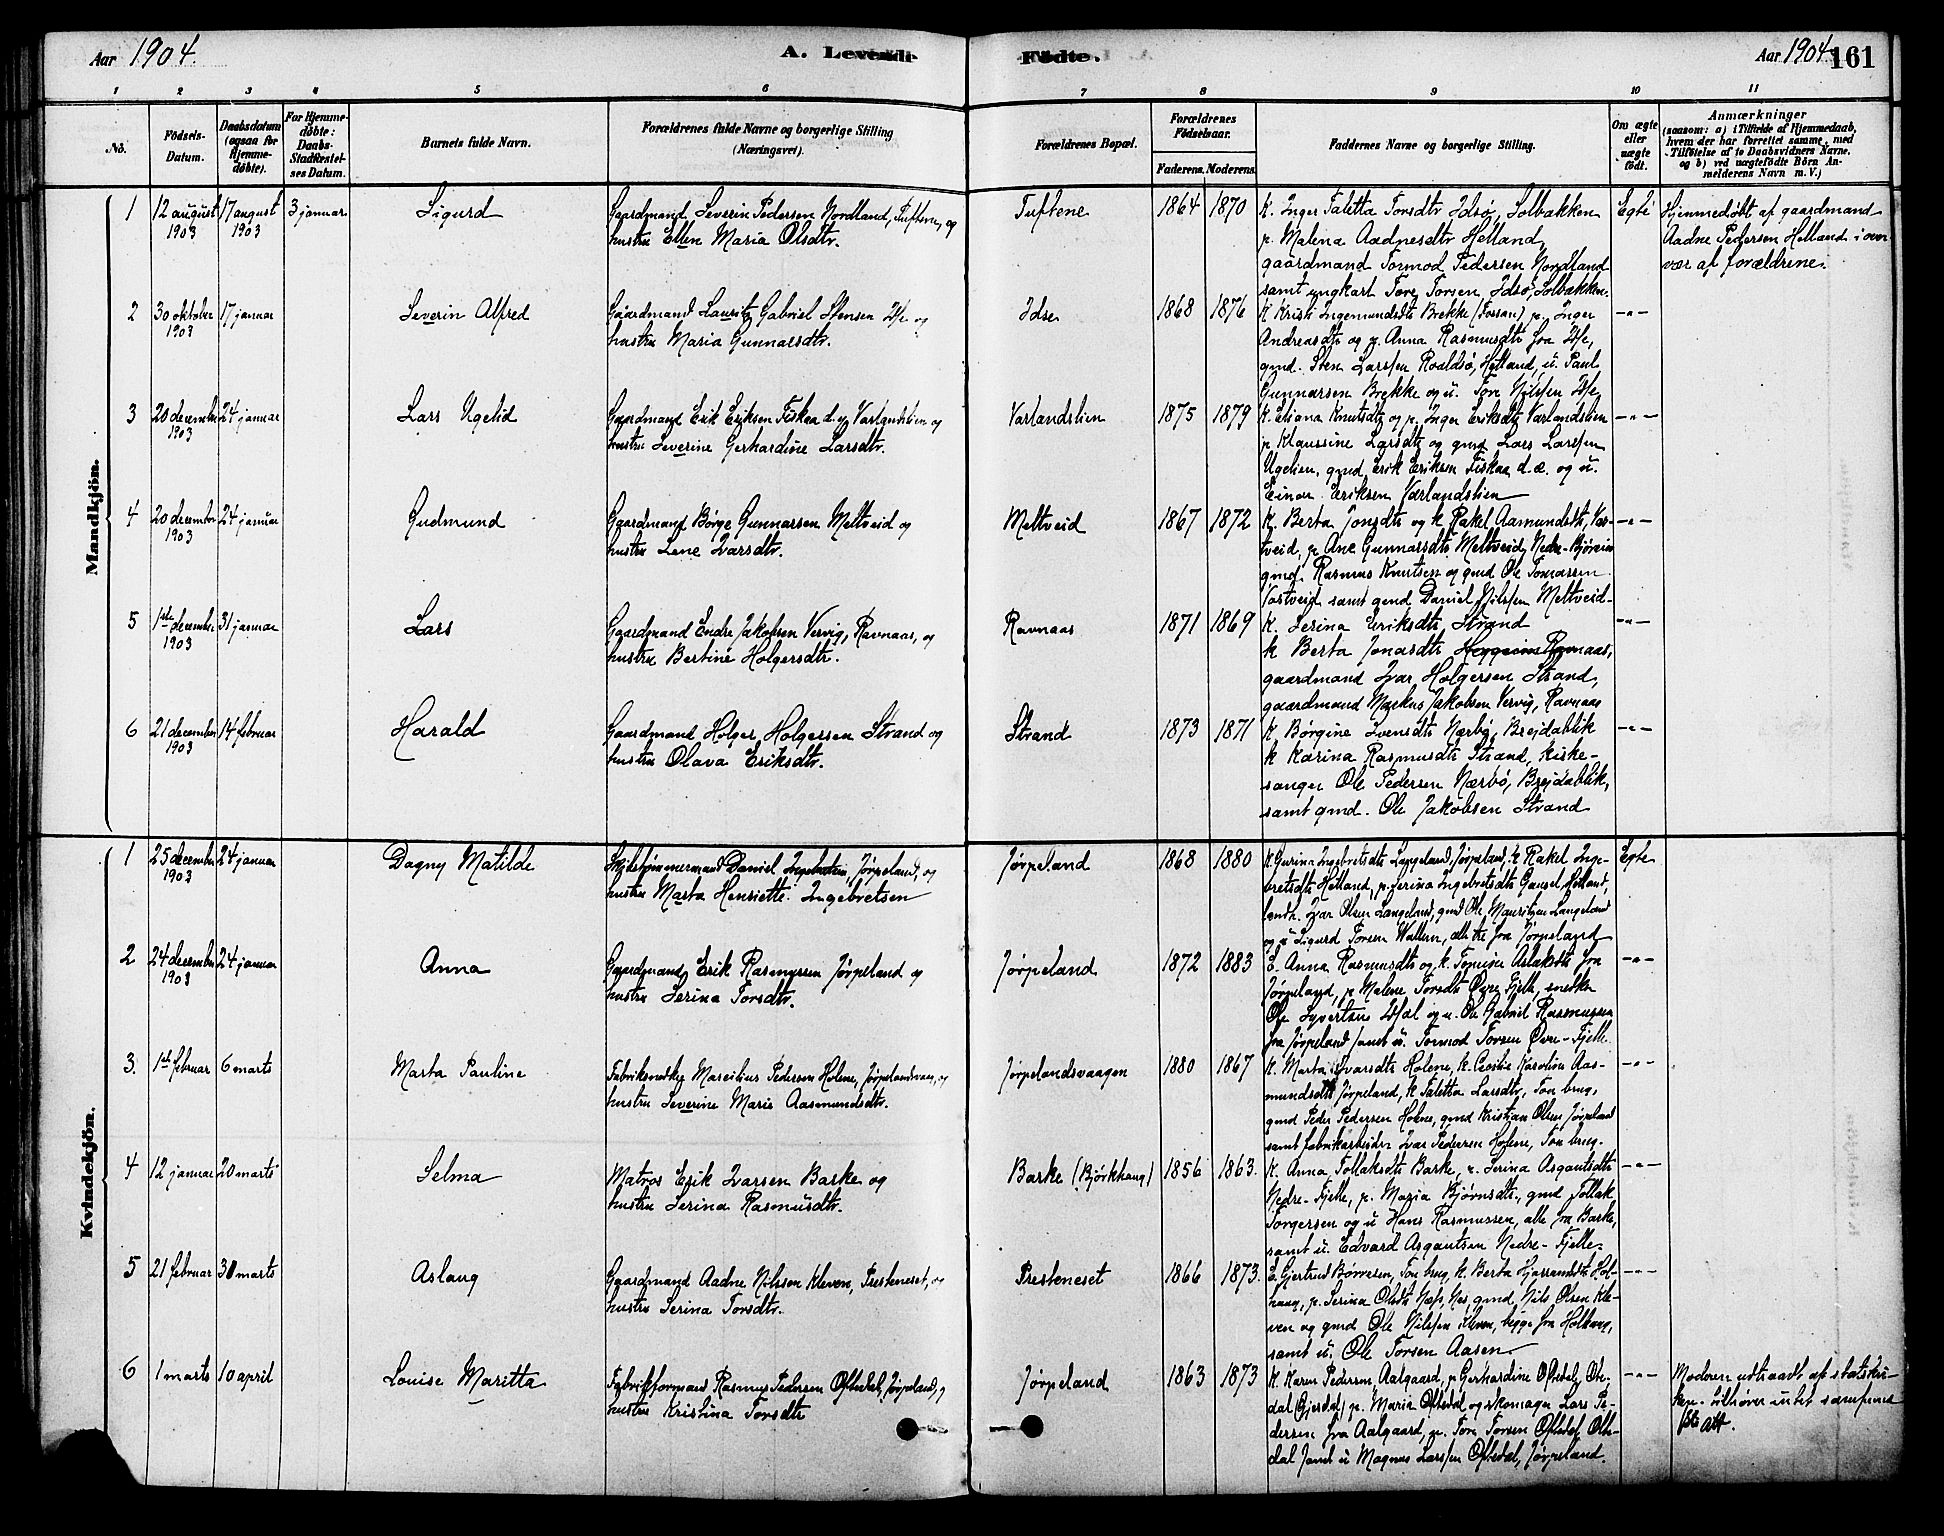 Aar 1904.
A. Levende
Födte.
Aar 1904
161
1 2 3 4 5 6 7 8 9 10 11
No.
Födsels-
Datum.
Daabsdatum
(ogsaa for
Hjemme-
döbte).
For Hjemme-
döbte:
Daabs-
Stadfæstel-
ses Datum.
Barnets fulde Navn.
Forældrenes fulde Navne og borgerlige Stilling
(Næringsvei).
Forældrenes Bopæl.
Forældrenes
Födselsaar.
Faderens. Moderens.
Faddernes Navne og borgerlige Stilling.
Om ægte
eller
uægte
födt.
Anmærkninger
(saasom: a) i Tilfælde af Hjemmedaab,
hvem der har forrettet samme, med
Tilföielse af to Daabsvidners Navne,
og b) ved uægtefödte Börn An-
melderens Navn m. V.)
Mandkjön.
1
12 august
1903
17 august
1903
3 januar
Sigurd
Gaardmand Severin Pedersen Nordland, Tuftene, og
hustru Ellen Maria Olsdtr.
Tuftene
1864
1870
K. Inger Taletta Torsdtr Idsø, Solbakken
p. Malena Aadnesdtr Helland,
gaardmand Tormod Pedersen Nordland
samt ungkarl Tore Torsen Idsø, Solbakken.
Egte
Hjemmedøbt af gaardmand
Aadne Pedersen Helland i over-
vær af forældrene.
2
30 oktober
1903
17 januar
Severin Alfred
Gaardmand Lauritz Gabriel Stensen Idse og
hustru Maria Gunnarsdtr.
Idse
1868
1876
K. Kristi Ingemundsdtr Brekke (Fossan) p. Inger
Andreasdtr og p. Anna Rasmusdtr fra Idse,
gmd. Sten Larssen Roaldsø, Helland, u. Paul
Gunnarsen Brekke og u. Tore Nilssen Idse
-"-
3
20 december
1903
24 januar
Lars Ugelid
Gaardmand Erik Eriksen Fiskaa d.y. Varlandslien og
hustru Severine Gerhardine Larsdtr.
Varlandslien
1875
1879
K. Eliana Knutsdtr og p. Inger Eriksdtr Varlandslien
p Klaussine Larsdtr og gmd Lars Larssen
Ugelien, gmd Erik Eriksen Fiskaa d.æ. og u.
Einar Eriksen Varlandslien
-"-
4
20 december
1903
24 januar
Gudmund
Gaardmand Børge Gunnarsen Meltveid og
hustru Lene Ivarsdtr.
Meltveid
1867
1872
K. Berta Jonsdtr og k. Rakel Aamundsdtr, Vos-
tveid, p. Ane Gunnarsdtr Meltveid, Nedre-
gmd. Rasmus Knutsen og gmd Ole Tomassen
Vostveid samt gmd Daniel Nilssen Meltveid-
-"-
5
1ste december
1903
31 januar
Lars
Gaardmand Endre Jakobsen Vervig, Ravnaas, og
hustru Bertine Holgersdtr.
Ravnaas
1871
1869
K. Serina Eriksdtr, Strand
k Berta Jonasdtr Ravnaas,
gaardmand Ivar Holgersen Strand,
gaardmand Markus Jakobsen Vervig, Ravnaas
-"-
6
21 december
1903
14 februar
Harald
Gaardmand Holger Holgersen Strand og
hustru Olava Eriksdtr.
Strand
1873
1871
K. Børgine Svensdtr Nærbø, Breidablik
k Karina Rasmusdtr Strand, kirke-
sanger Ole Pedersen Nærbø, Breidablik,
samt gmd. Ole Jakobsen Strand
-"-
Kvindekjön.
1
25 december
1903
24 januar
Dagny Matilde
Skibstømmermand Daniel Ingebretsen, Jørpeland, og
hustru Marta Henriette Ingebretsen
Jørpeland
1868
1880
K. Gurina Ingebretsdtr Langeland, Jørpeland, k. Rakel Inge-
bretsdtr Helland, p. Serina Ingebretsdtr Gausel, Helland,
Ivar Olsen Langeland, gmd Ole Mauritzen Langeland
og u Sigurd Torsen Wallem, alle tre fra Jørpeland
Egte
2
24 december
1903
24 januar
Anna
Gaardmand Erik Rasmussen Jørpeland og
hustru Serina Torsdtr.
Jørpeland
1872
1883
E. Anna Rasmusdtr og k. Tomine Aslaksdtr fra
Jørpeland, p Malene Torsdtr Øvre Fjelle, snedker
Ole Syvertsen Idsal og u. Ole Gabriel Rasmussen
fra Jørpeland samt u. Tormod Torsen Øvre-Fjelle.
-"-
3.
1ste februar
6 marts
Marta Pauline
Marcelius Pedersen Holene, Jørpelandsvaagen, og
hustru Severine Marie Aasmundsdtr.
Jørpelandsvaagen
1880
1867
K. Marta Ivarsdtr Holene, k. Cecilie Karoline Aas-
mundsdtr Jørpeland, k Taletta Larsdtr, Ton brug,
gmd Peder Pedersen Holene, gmd Kristian Olsen Jørpeland
samt fabrikarbeider Ivar Pedersen Holene, Ton brug.
-"-
4
12 januar
20 marts
Selma
Matros Erik Ivarsen Barke og
hustru Serina Rasmusdtr.
Barke (Bjørkhaug)
1856
1863.
K. Anna Tollaksdtr Barke, k. Serina Asgautsdtr
Nedre-Fjelle, p. Maria Bjørnsdtr., gmd Tollak
Torgersen og u Hans Rasmussen, alle fra Barke,
samt u. Edvard Asgautsen Nedre-Fjelle.
-"-
5
21 februar
30 marts
Aslaug
Gaardmand Aadne Nilssen Kleven, Presteneset, og
hustru Serina Torsdtr.
Presteneset
1866
1873.
E. Gjertrud Børresen, Ton brug, k. Berta Hol-
haug, p. Serina Olsdtr Næs, gmd. Nils Olsen Kle-
ven og gmd Ole Nilssen Kleven, begge fra Holhaug,
samt u. Ole Torsen Aasen
-"-
6
1 marts
10 april
Louise Maritta
Fabrikformand Rasmus Pedersen Oftedal, Jørpeland, og
hustru Kristina Torsdtr
Jørpeland
1863
1873
K. Karen Pedersen Aalgaard, p Gerhardine Oftedal, Of-
dal (Gjesdal) p. Maria Oftedal og skomager Lars Pe-
dersen fra Aalgaard, Tore Torsen Oftedal, Ofte-
dal samt u Magnus Larssen Oftedal, Jørpeland.
-"-
Moderen udtraadt af statskir-
ken - tilhører intet samfund